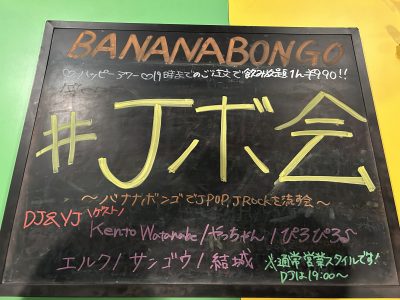 BANANABONGO
♡ハッピーアワー♡19時までのご注文で飲み放題1h¥990!!
#Jボ会
～バナナボンゴでJPOP,JRockを流す会～
DJ&VJ
(ゲスト)
Kento Watanabe/やっちゃん/ぴろぴろ
エルク/サンゴウ/結城
※通常営業スタイルです!
DJは19:00～